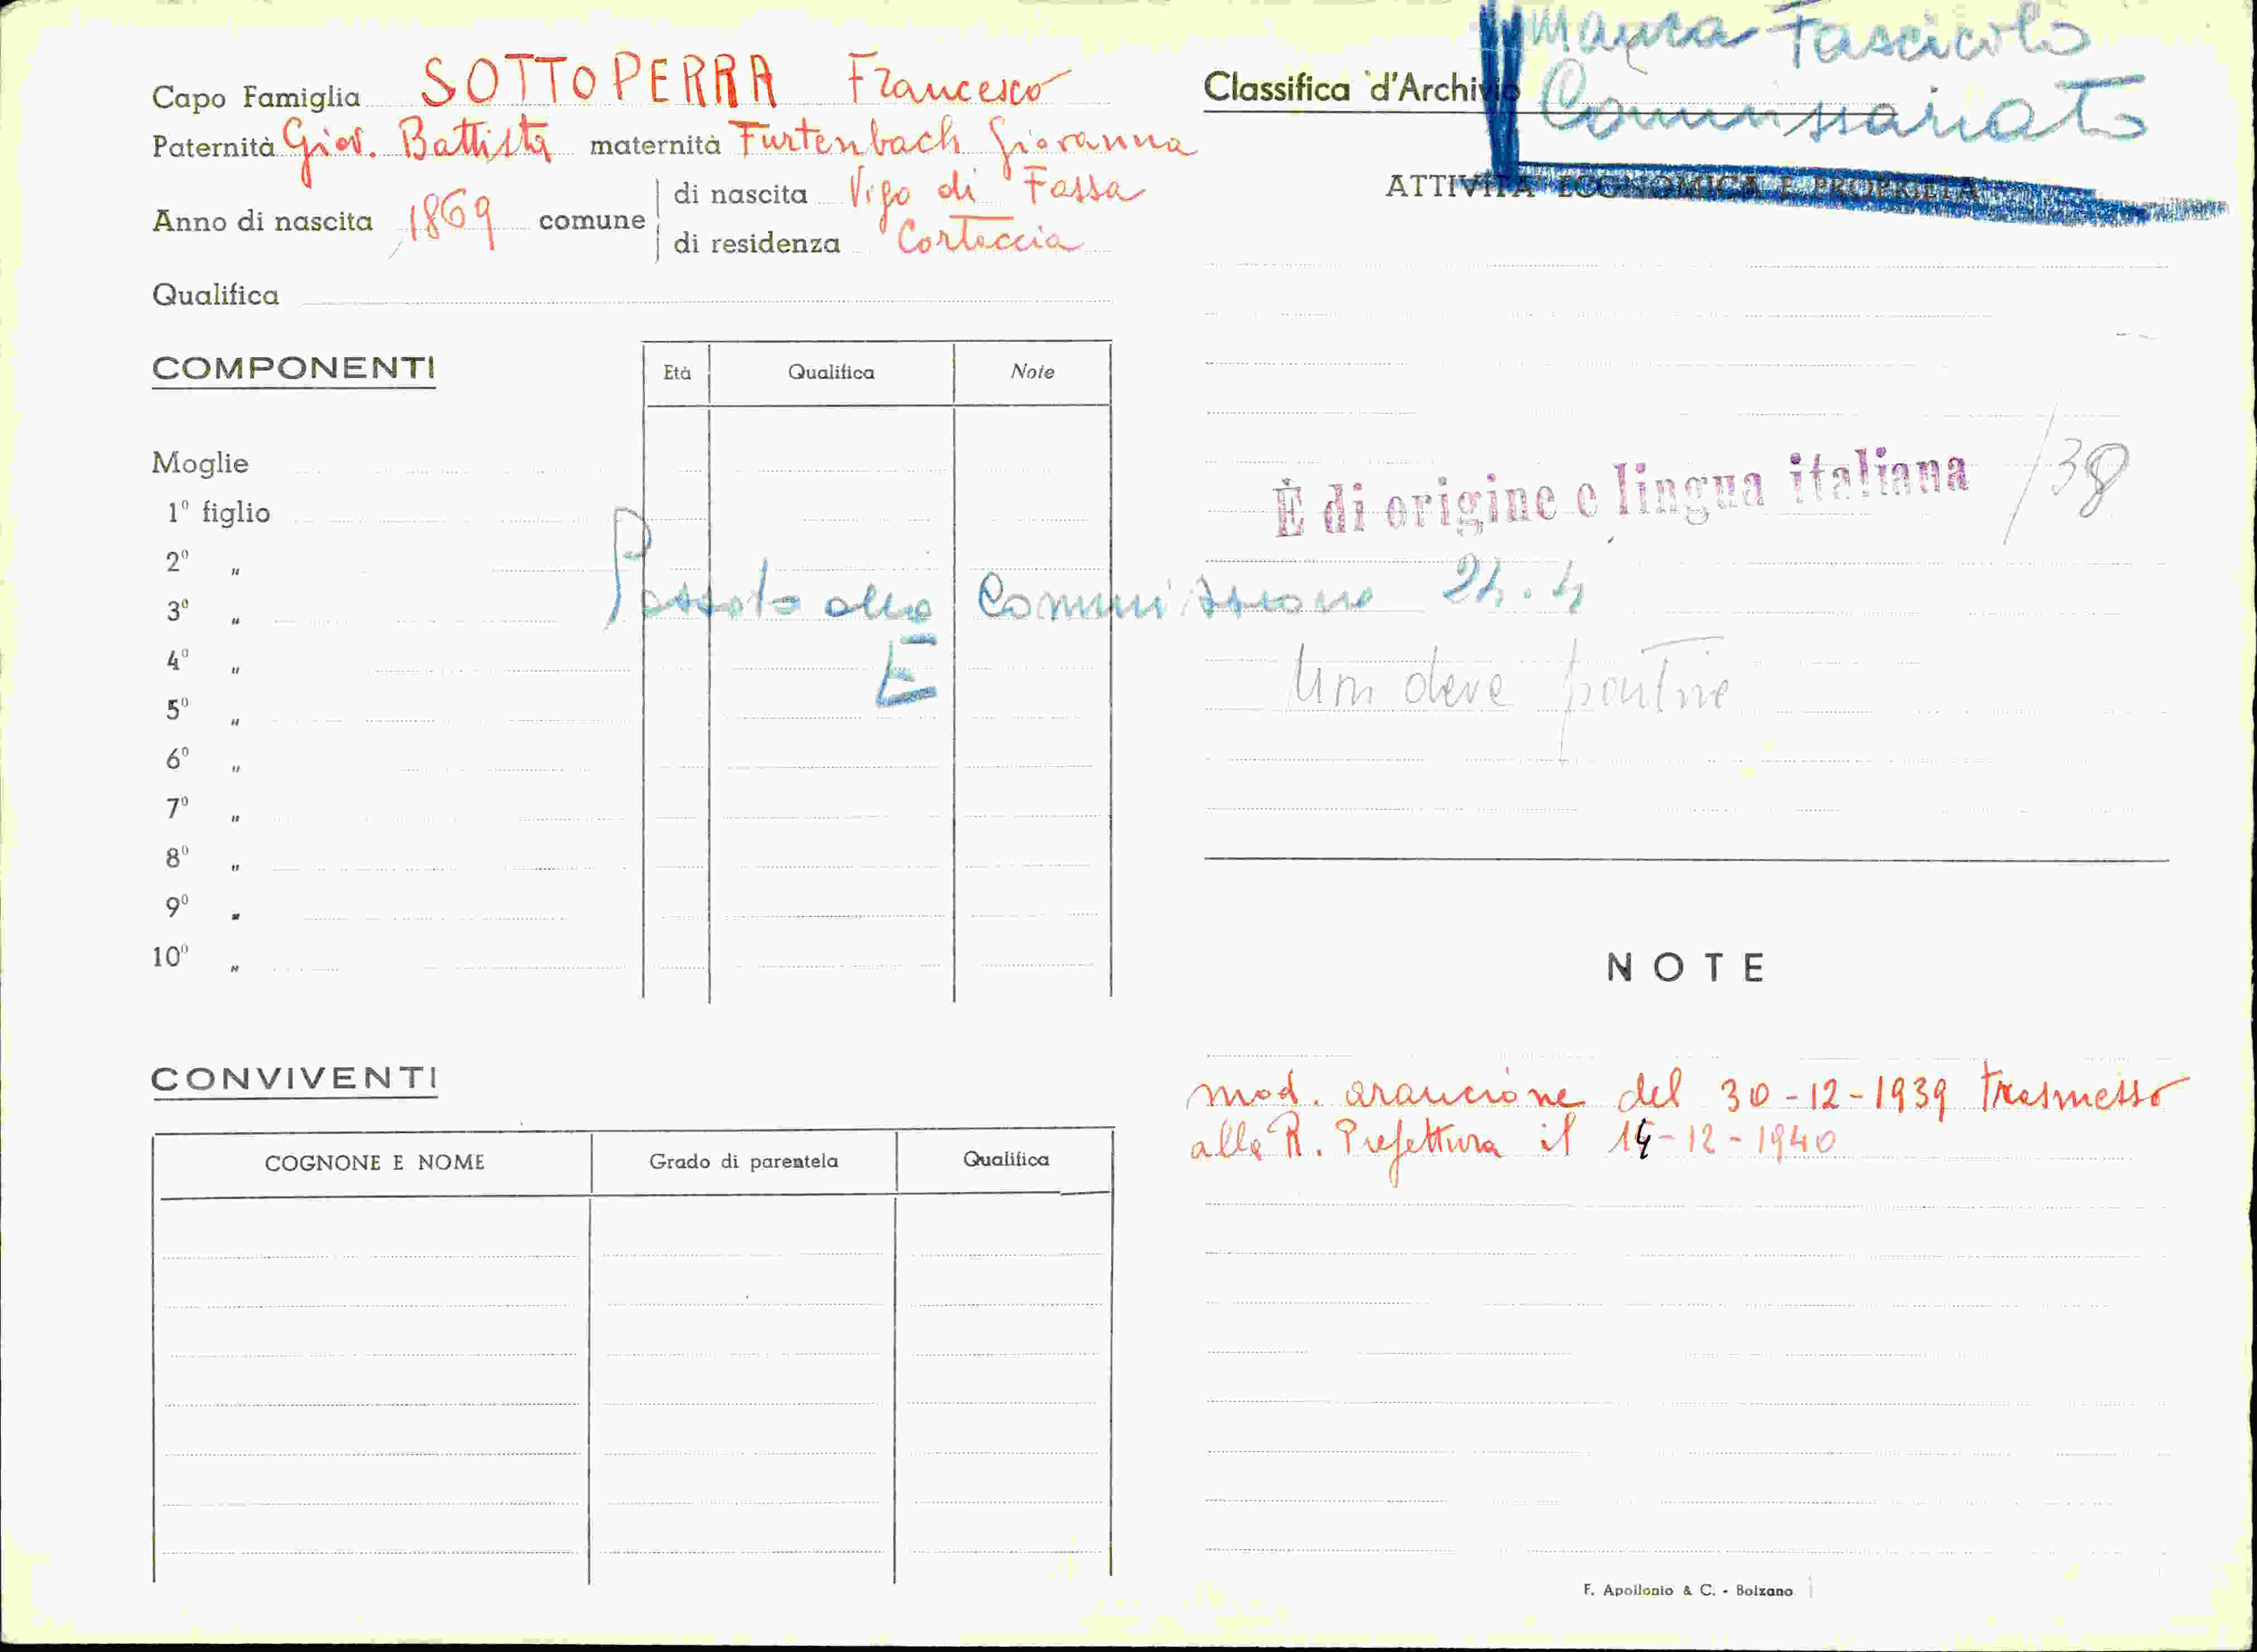 Manca Fascicolo
Commissariato
Capo Famiglia SOTTOPERRA Francesco
Paternità Giov. Battista maternità Furtenbach Giovanna
Anno di nascita 1869 comune di nascita Vigo di Fassa
di residenza Corteccia
Qualifica
COMPONENTI
Età Qualifica Note
Moglie
1º figlio
2º "
3º "
4º "
5º "
6º "
7º "
8º "
9º "
10º "
Passato alla Commissione 24.4
E
CONVIVENTI
COGNONE E NOME Grado di parentela Qualifica
Classifica d'Archivio
ATTIVITÀ ECONOMICA E PROPRIETÀ
È di origine e lingua italiana /38
deve
NOTE
mod. arancione del 30-12-1939 trasmesso
alla R. Prefettura il 14-12-1940
F. Apollonio & C. - Bolzano